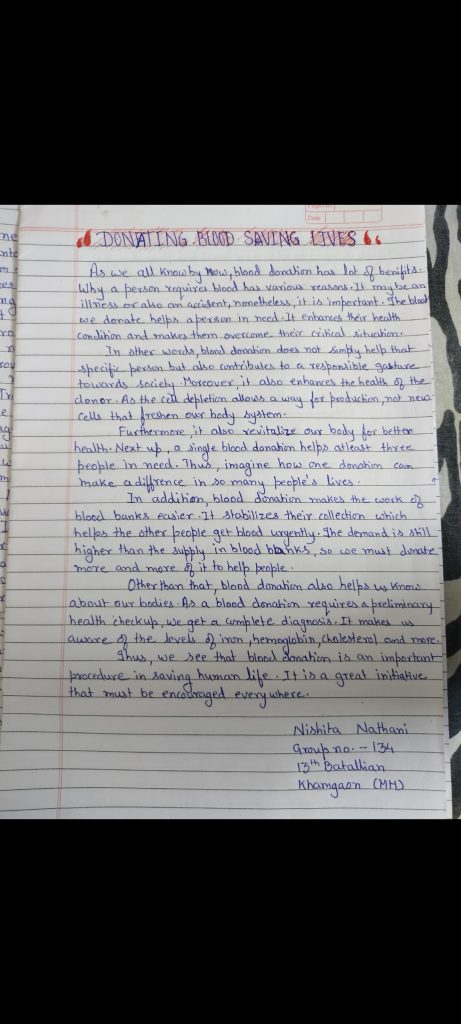 Date
DONATING BLOOD SAVING LIVES
As we all know by now, blood donation has lot of benifits.
Why a person requires blood has various reasons. It may be an
illness or also an accident, nonetheless, it is important. The blood
we donate helps a person in need. It enhances their health
condition and makes them overcome their critical situation.
In other words, blood donation does not simply help that
specific person but also contributes to a responsible gasture
towards society. Moreover, it also enhances the health of the
donor. As the cell depletion allows a way for production, not new
cells that freshen our body system.
Furthermore, it also revitalize our body for better
health. Next up, a single blood donation helps atleast three
people in need. Thus, imagine how one donation can
make a diffrence in so many people's lives.
In addition, blood donation makes the work of
blood banks easier. It stabilizes their collection which
helps the other people get blood urgently. The demand is still
higher than the supply in blood banks, so we must donate
more and more of it to help people.
Other than that, blood donation also helps us know
about our bodies. As a blood donation requires a preliminary
health checkup, we get a complete diagnosis. It makes us
aware of the levels of iron, hemoglobin, cholesterol and more.
Thus, we see that blood donation is an important
procedure in saving human life. It is a great initiative
that must be encouraged everywhere.
Nishita Nathani
Group no. - 134
13th Batallian
Khamgaon (MH)